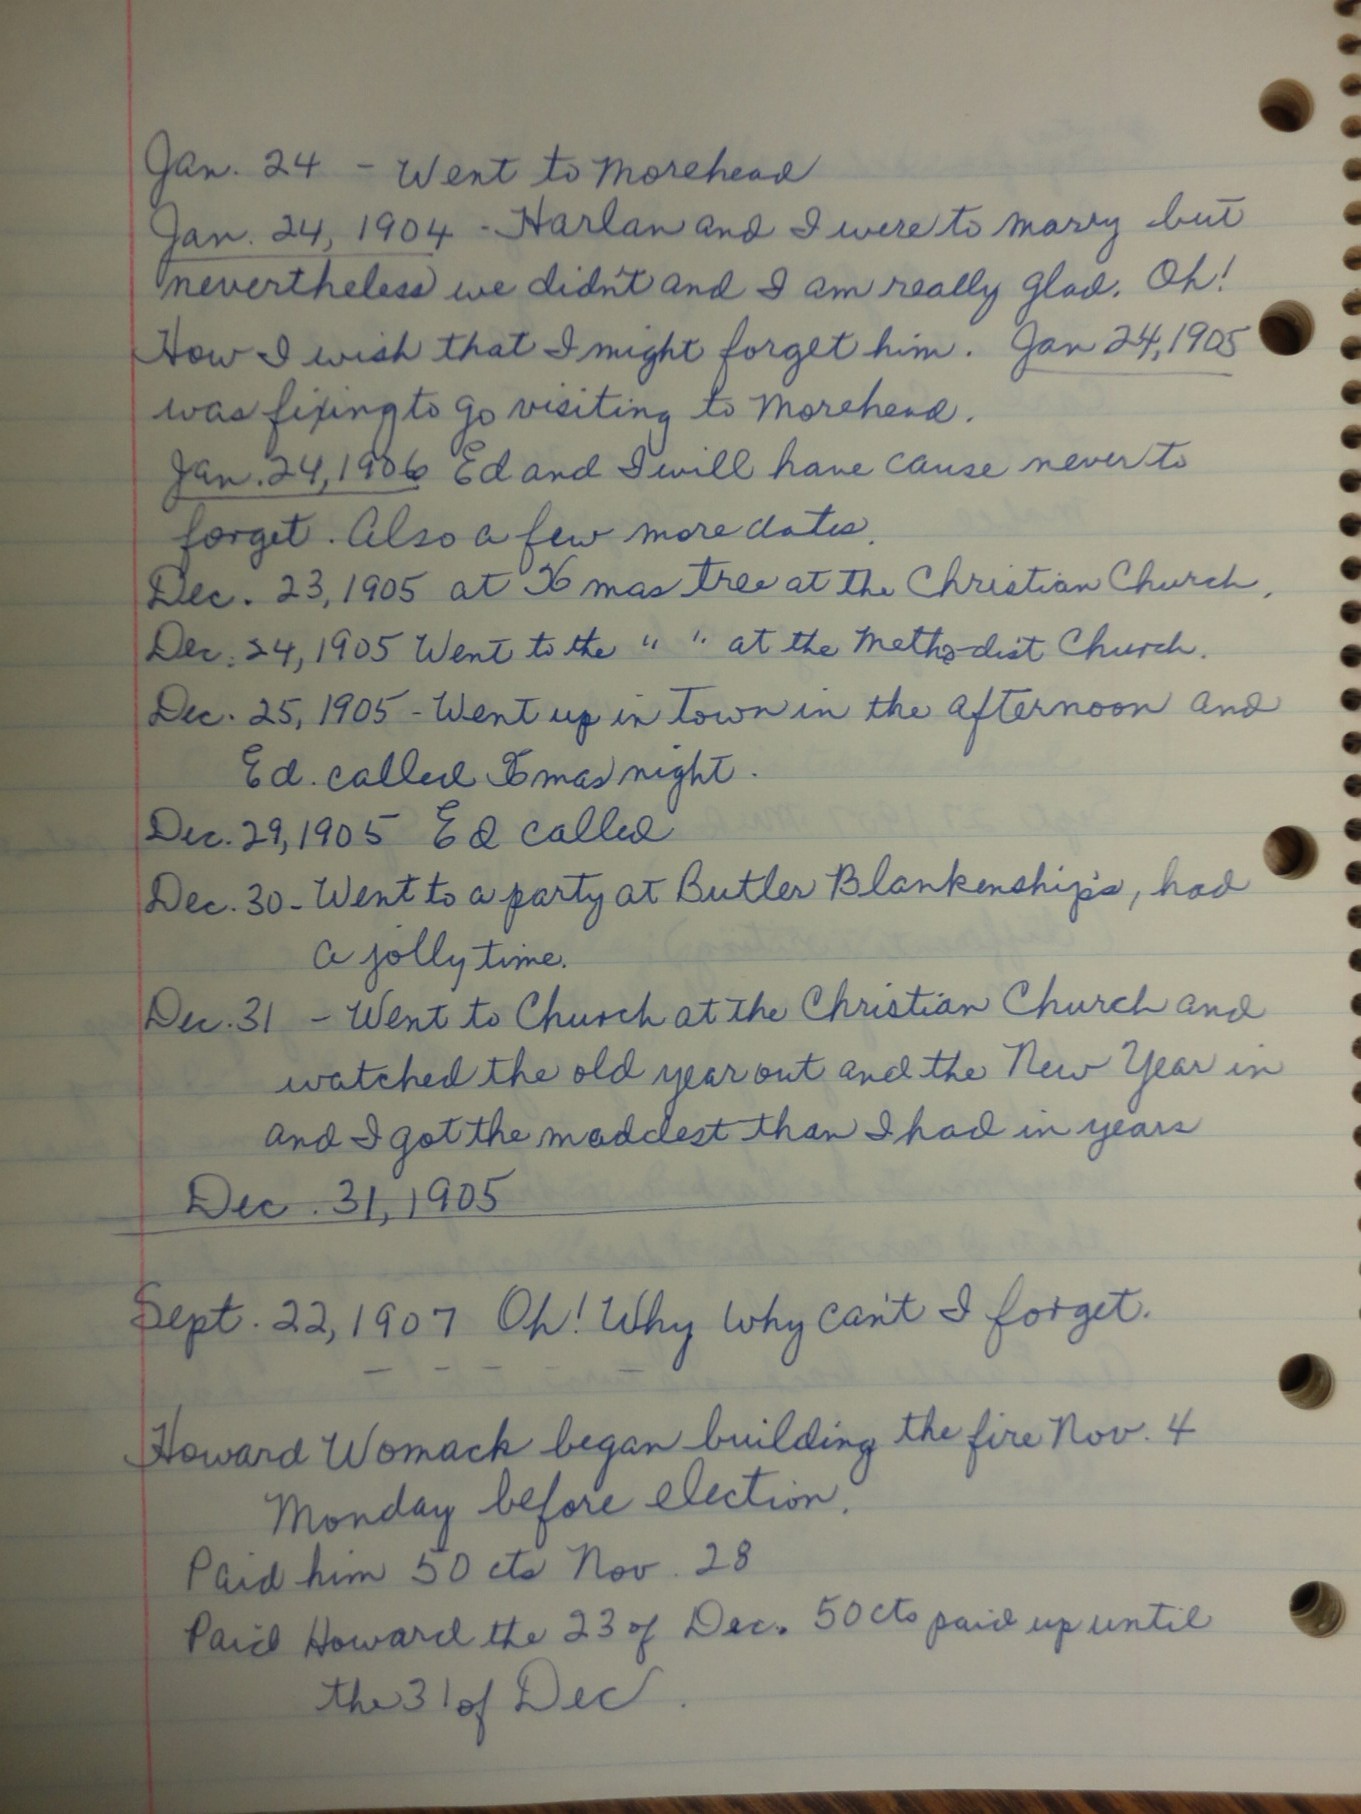 Jan. 24 - Went to Morehead
Jan. 24, 1904 - Harlan and I were to marry but
nevertheless we didn't and I am really glad. Oh!
How I wish that I might forget him. Jan 24, 1905
was fixing to go visiting to Morehead.
Jan. 24, 1906 Ed and I will have cause never to
forget. Also a few more dates.
Dec. 23, 1905 at Xmas tree at the Christian Church.
Dec. 24, 1905 Went to the " " at the Methodist Church.
Dec. 25, 1905 - Went up in town in the afternoon and
Ed. called Xmas night.
Dec. 29, 1905 Ed called
Dec. 30 - Went to a party at Butler Blankenship's, had
a jolly time.
Dec. 31 - Went to Church at the Christian Church and
watched the old year out and the New Year in
and I got the maddest than I had in years
Dec. 31, 1905
Sept. 22, 1907 Oh! Why Why can't I forget.
- - - - -
Howard Womack began building the fire Nov. 4
Monday before election.
Paid him 50 cts Nov. 28
Paid Howard the 23 of Dec. 50cts paid up until
the 31 of Dec.